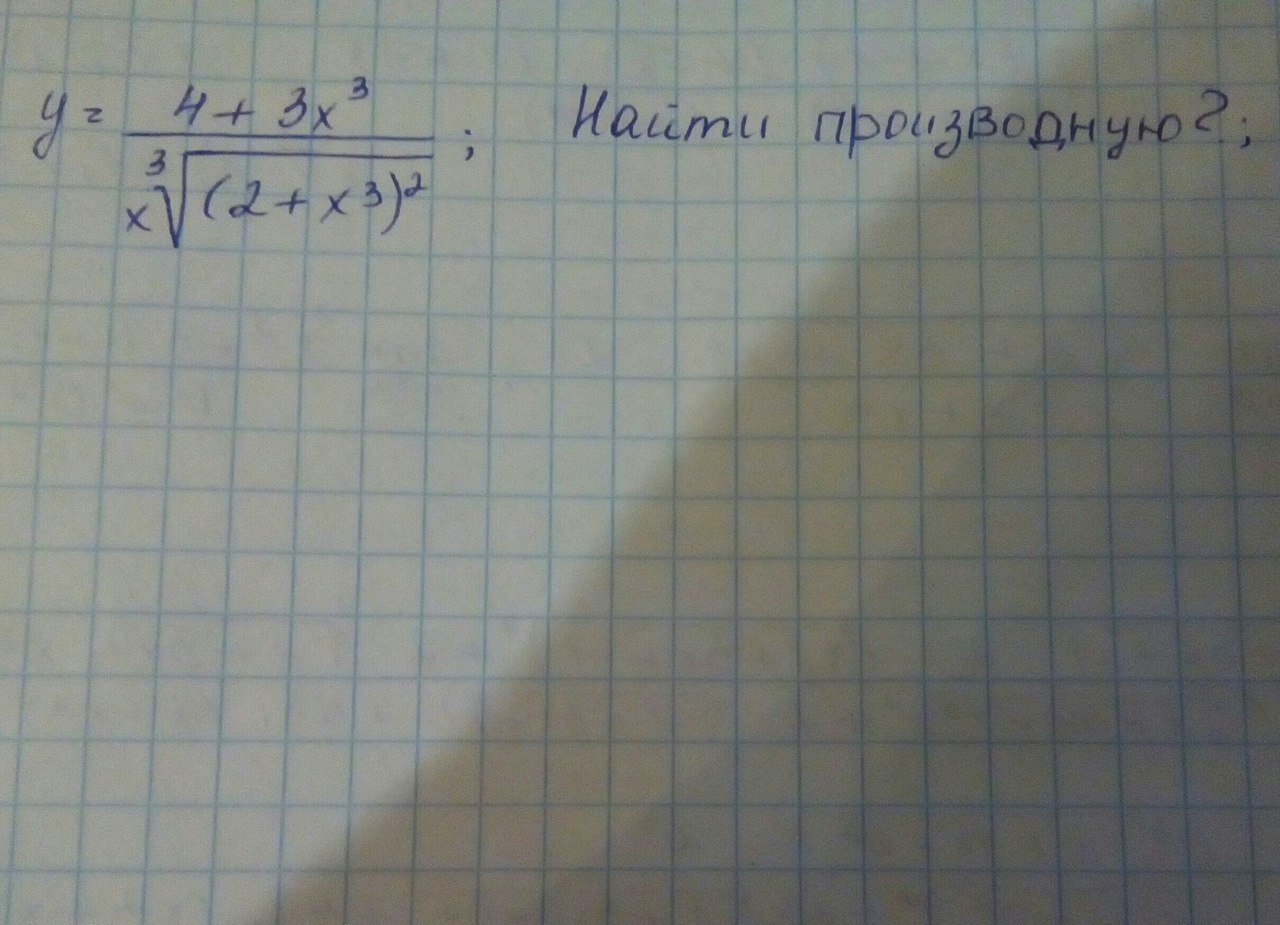 y = \frac{4 + 3x^3}{x\sqrt[3]{(2 + x^3)^2}} ; Найти производную?;